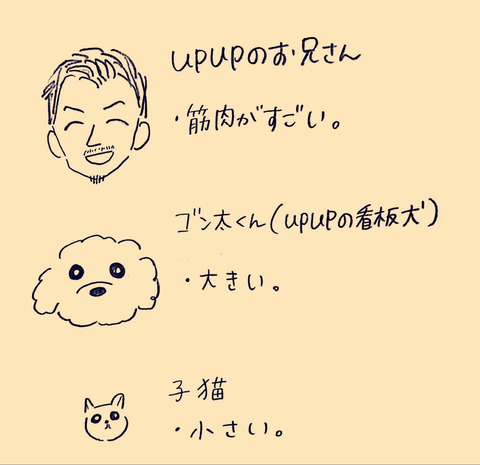 upupのお兄さん
・筋肉がすごい。
ゴン太くん(upupの看板犬)
・大きい。
子猫
・小さい。